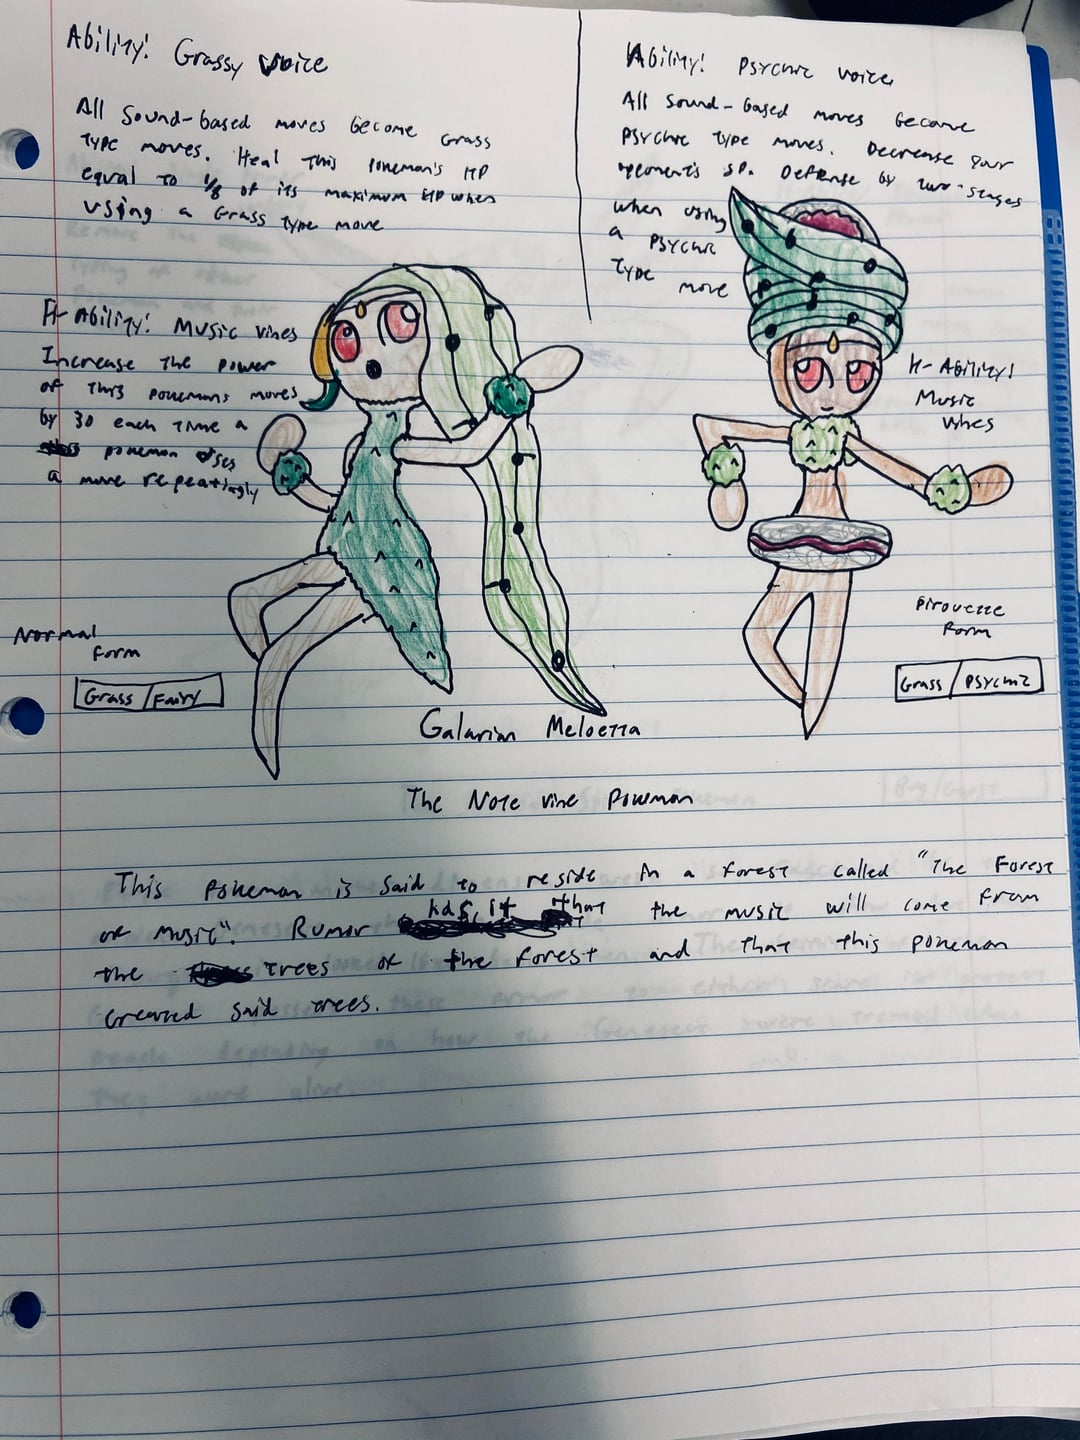 Ability! Grassy Voice
All Sound-based moves become Grass
Type moves. Heal This Pokemon's HP
equal To 1/8 of its maximum HP when
using a Grass Type move
Ability! Psychic Voice
All Sound-based moves became
Psychic Type moves. Decrease your
oponent's SP. Defense by Two-stages
when using
a Psychic
Type move
H-Ability! Music vines
Increase The power
of This Pokemons moves
by 30 each Time a
pokemon uses
a move repeatingly
H-Ability!
Music
Vines
Normal
Form
Grass/Fairy
Pirouette
Form
Grass/Psychic
Galarian Meloetta
The Note vine Pokemon
This Pokemon is Said to reside in a forest called "The Forest
of Music". Rumor has it that the music will come from
the trees of the forest and that this pokemon
created said trees.